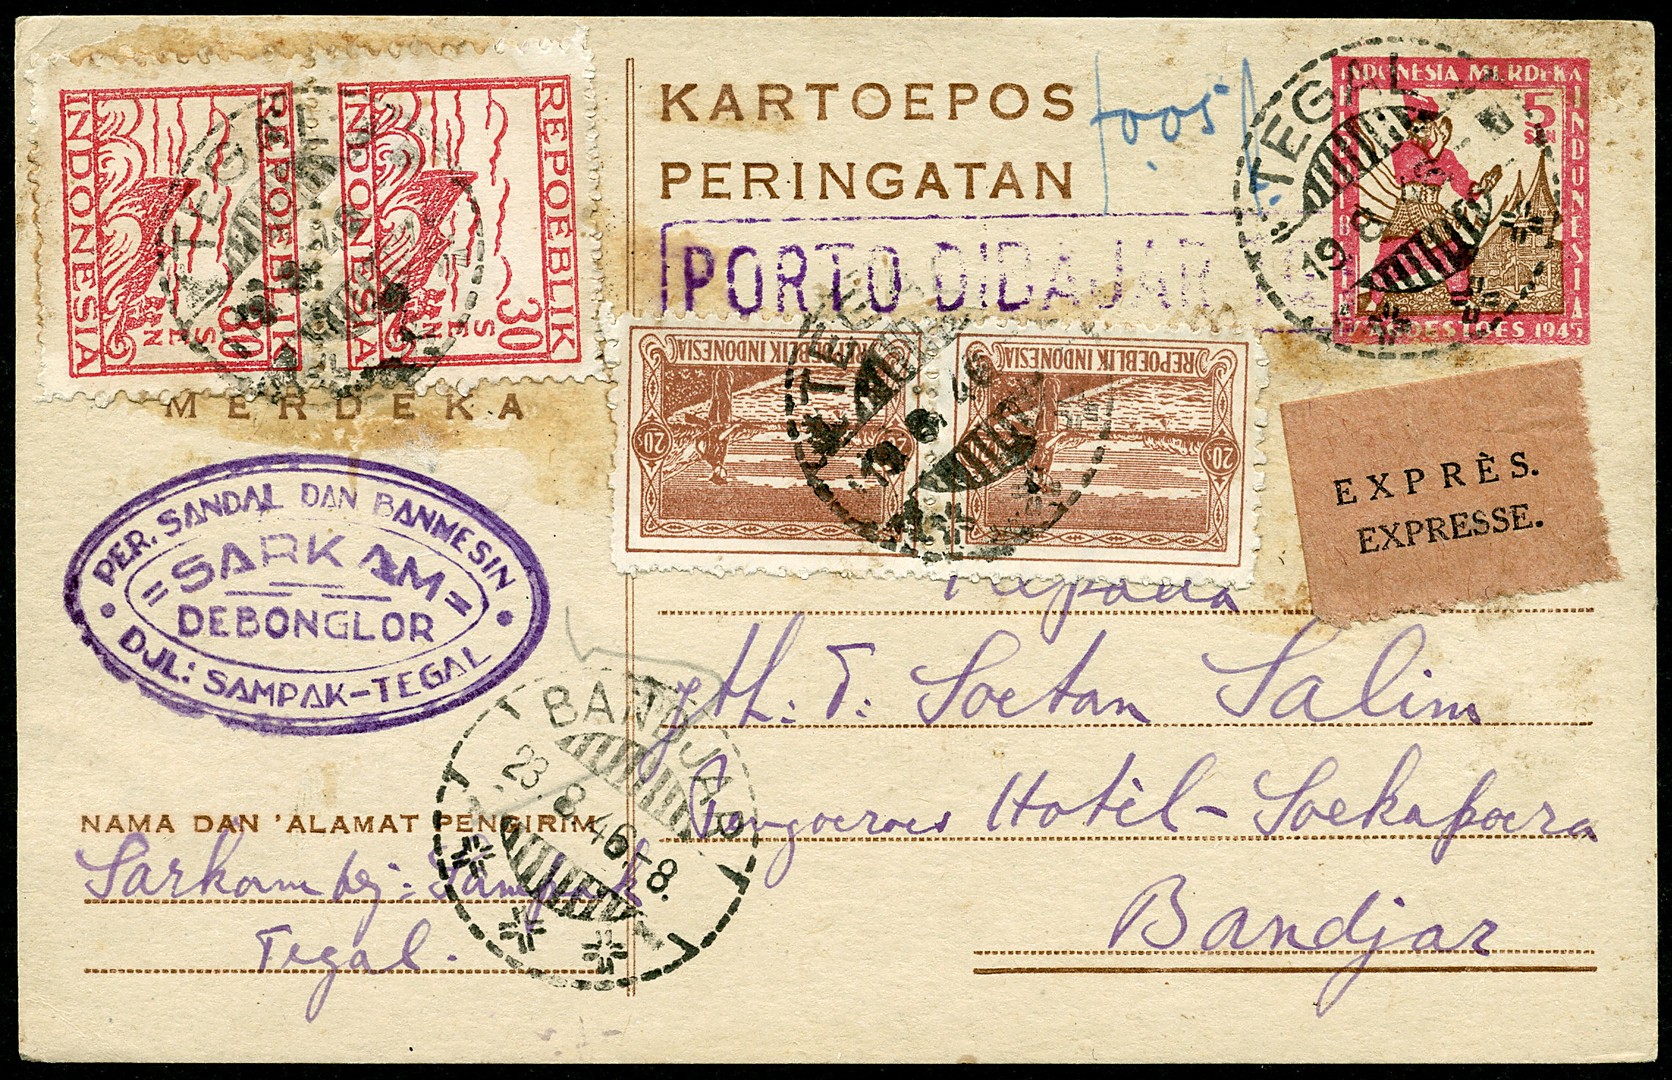 KARTOEPOS
PERINGATAN
foos
INDONESIA MERDEKA
5
SEN
INDUNESIA
1945
TEGAL
19.8
REPOEBLIK
INDONESIA
30
SEN
REPOEBLIK
INDONESIA
30
SEN
TEGAL
PORTO DIBAJAR
REPOEBLIK INDONESIA
20S
REPOEBLIK INDONESIA
20S
20S
19.8.46
EXPRÈS.
EXPRESSE.
MERDEKA
PER. SANDAL DAN BANMESIN
=SARKAM=
DEBONGLOR
DJL: SAMPAK-TEGAL
Kepada
Jth: T: Soetan Salim
Pengoeroes Hotèl-Soekapoera
Bandjar
BANDJAR
23.8.46-8.
NAMA DAN 'ALAMAT PENGIRIM
Sarkam bej: Sampak
Tegal.